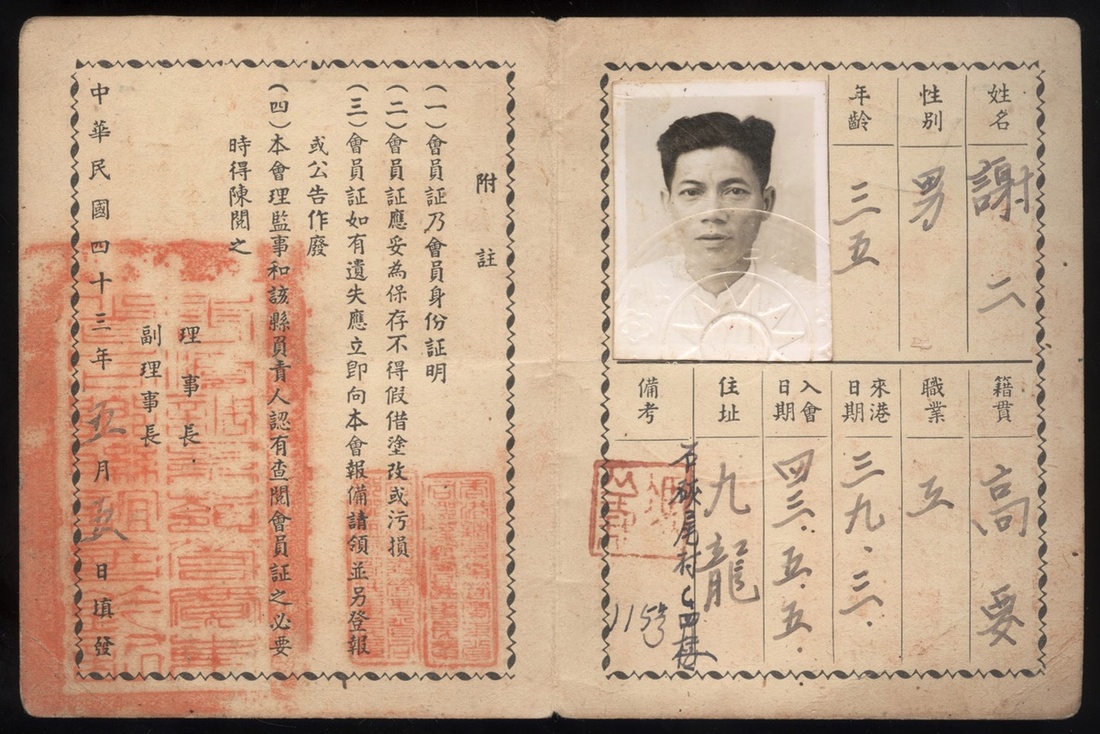 姓名 謝二
性別 男
年齡 三五
籍貫 高要
職業 工
來港日期 三九.三.
入會日期 四三.五.五.
住址 九龍
石硤尾村
四樓
115号
備考
附註
（一）會員証乃會員身份証明
（二）會員証應妥為保存不得假借塗改或污損
（三）會員証如有遺失應立即向本會報備請領並另登報
或公告作廢
（四）本會理監事和該縣負責人認有查閱會員証之必要
時得陳閱之
理事長
副理事長
中華民國四十三年五月五日填發